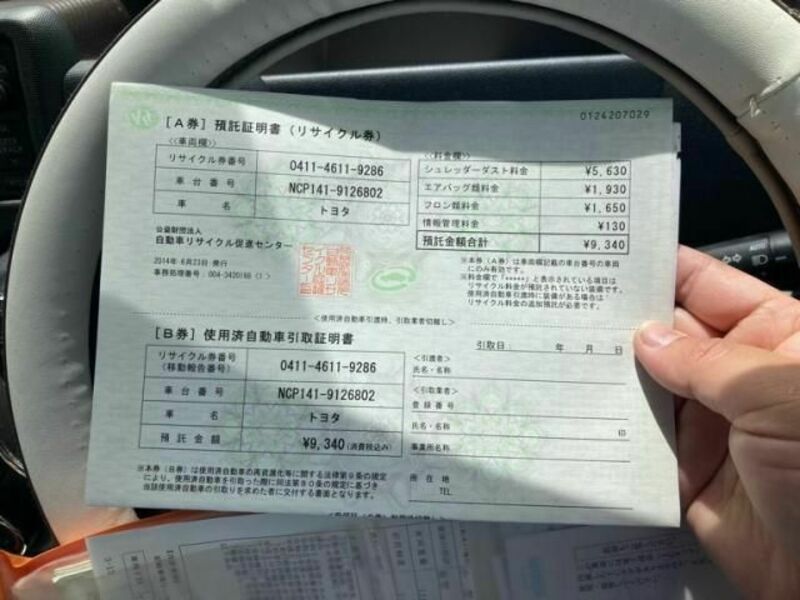 0124207029
[A券] 預託証明書 (リサイクル券)
<車両欄>
リサイクル券番号 0411-4611-9286
車台番号 NCP141-9126802
車名 トヨタ
<料金欄>
シュレッダーダスト料金 ¥5,630
エアバッグ類料金 ¥1,930
フロン類料金 ¥1,650
情報管理料金 ¥130
預託金額合計 ¥9,340
公益財団法人
自動車リサイクル促進センター
2014年 6月23日 発行
※本券(A券)は車両欄記載の車台番号の車両
にのみ有効です。
※料金欄で「*****」と表示されている項目は
リサイクル料金が預託されていない装備です。
使用済自動車引渡時に装備がある場合は
リサイクル料金の追加預託が必要です。
<使用済自動車引渡時、引取業者切離し>
[B券] 使用済自動車引取証明書
リサイクル券番号
(移動報告番号) 0411-4611-9286
車台番号 NCP141-9126802
車名 トヨタ
預託金額 ¥9,340(消費税込み)
引取日: 年 月 日
<引渡者>
氏名・名称
<引取業者>
登録番号
氏名・名称 印
事業所名称
所在地
TEL
※本券(B券)は使用済自動車の再資源化等に関する法律第9条の規定
により、使用済自動車を引取った際に同法第80条の規定に基づき
当該使用済自動車の引取りを求めた者に交付する書面となります。